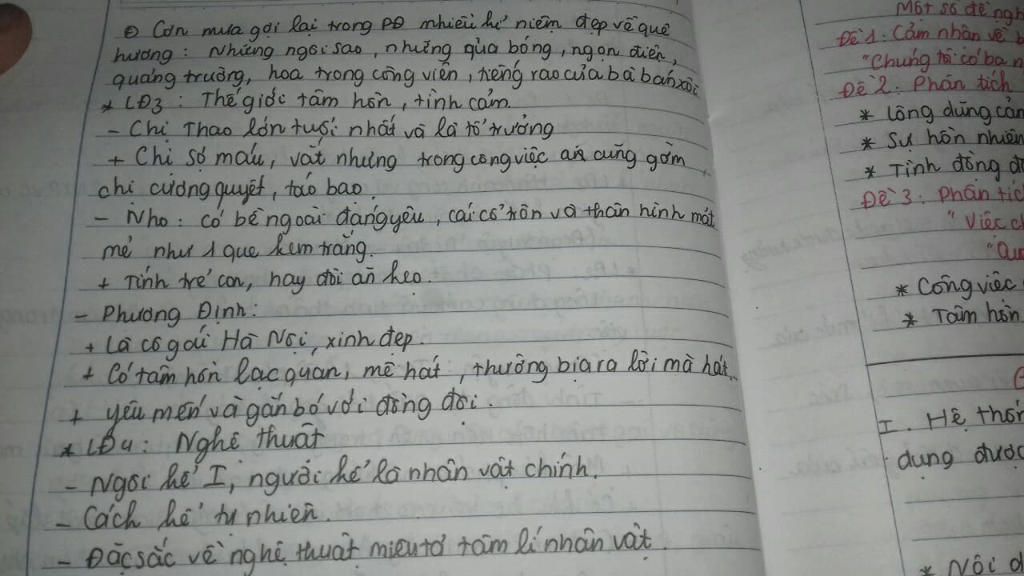 ⊕ Cơn mưa gợi lại trong PĐ nhiều kỉ niệm đẹp về quê
hương: Những ngôi sao, những quả bóng, ngọn điện,
quảng trường, hoa trong công viên, tiếng rao của bà bán xôi
* LĐ3: Thế giới tâm hồn, tình cảm.
- Chị Thao lớn tuổi nhất và là tổ trưởng
+ Chị sợ máu, vắt nhưng trong công việc ai cũng gờm
chị cương quyết, táo bạo
- Nho: có bề ngoài đáng yêu, cái cổ tròn và thân hình mát
mẻ như 1 que kem trắng.
+ Tính trẻ con, hay đòi ăn kẹo.
- Phương Định:
+ Là cô gái Hà Nội, xinh đẹp
+ Có tâm hồn lạc quan, mê hát, thường bịa ra lời mà hát..
+ yêu mến và gắn bó với đồng đội.
* LĐ4: Nghệ thuật
- Ngôi kể I, người kể là nhân vật chính.
- Cách kể tự nhiên.
- Đặc sắc về nghệ thuật miêu tả tâm lí nhân vật.
Một số đề ngh
Đề 1: Cảm nhận về
"Chúng tôi có ba n
Đề 2: Phân tích
* lòng dũng cảm
* Sự hồn nhiên
* Tình đồng đ
Đề 3: Phân tíc
"Việc c
* Công việc
* Tâm hồn
I. Hệ thốn
dụng được
* Nội d